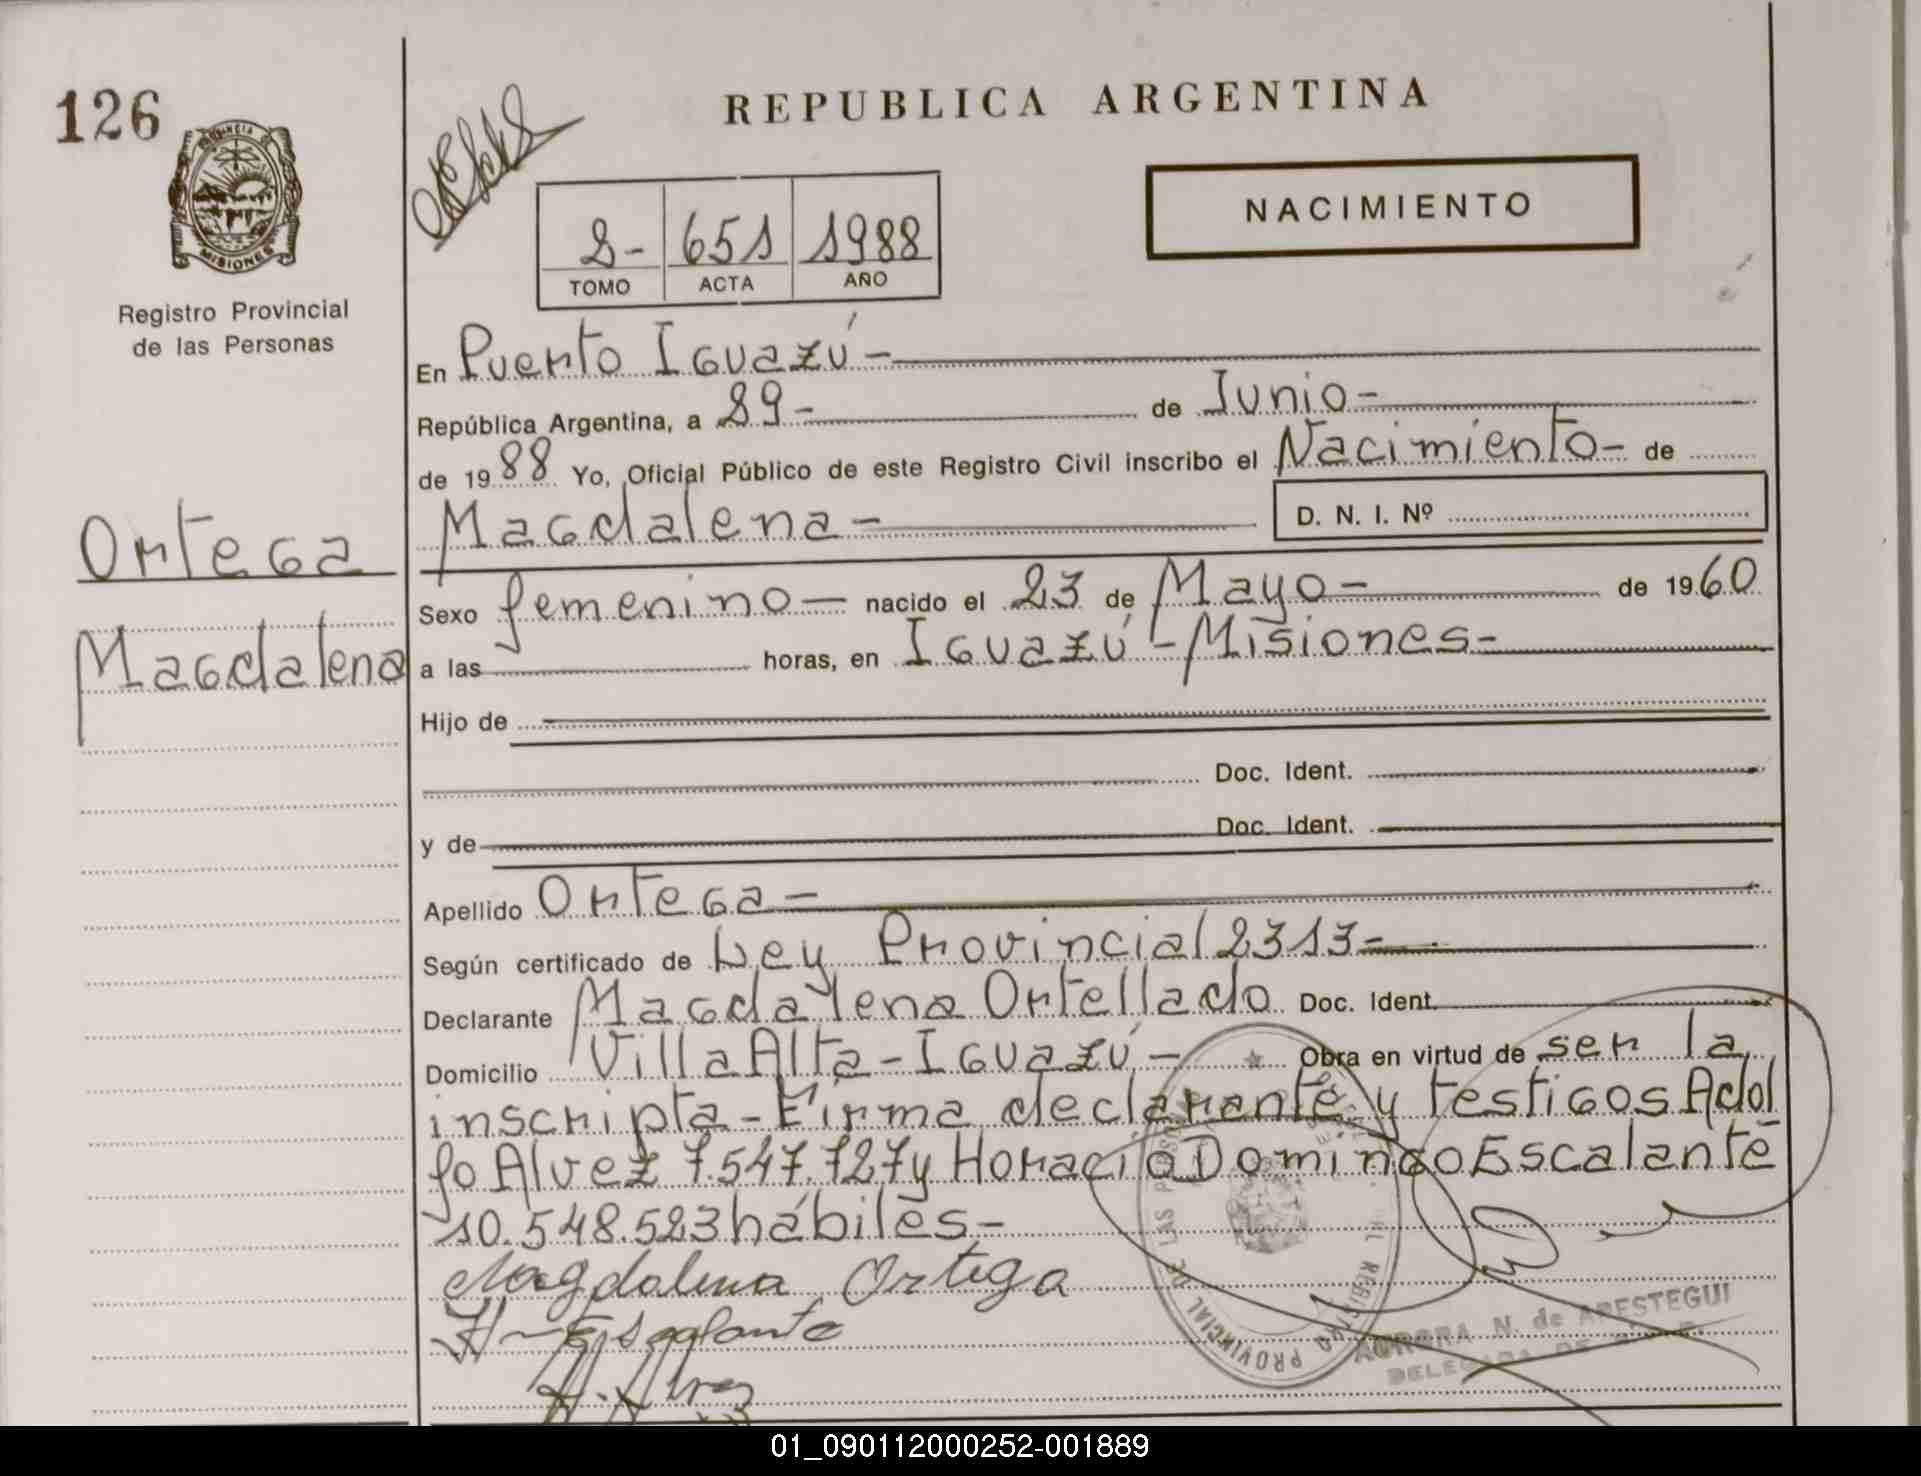 126
REPUBLICA ARGENTINA
NACIMIENTO
2- 651 1988
TOMO ACTA AÑO
MISIONES
Registro Provincial
de las Personas
En Puerto Iguazú -
República Argentina, a 29 - de Junio -
de 1988 Yo, Oficial Público de este Registro Civil inscribo el Nacimiento - de
Magdalena -
D. N. I. Nº
Ortega
Magdalena
Sexo femenino - nacido el 23 de Mayo - de 1960
a las horas, en Iguazú - Misiones -
Hijo de
Doc. Ident.
y de Doc. Ident.
Apellido Ortega -
Según certificado de Ley Provincial 2313 -
Declarante Magdalena Ortellado Doc. Ident.
Domicilio Villa Alta - Iguazú - Obra en virtud de ser la
inscripta - Firma declarante y testigos Adol
fo Alvez 7.547.727 y Horacio Domingo Escalante
10.548.523 hábiles -
Magdalena Ortega
H Escalante
A. Alvez
REGISTRO PROVINCIAL DE LAS
AURORA N. de ARESTEGUI
01_090112000252-001889